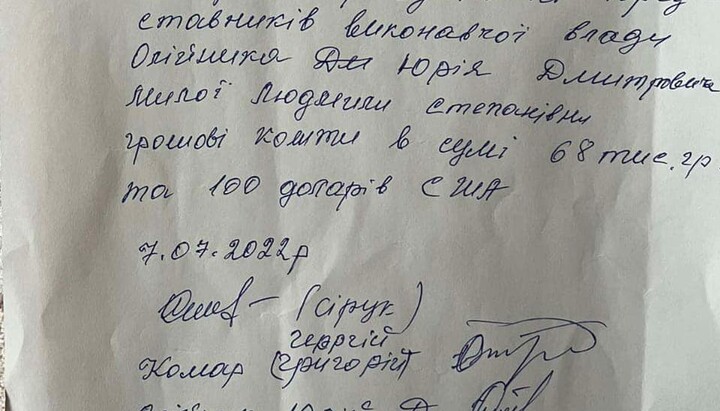 ставників виконавчої влади
Олійника Дм Юрія Дмитровича
Милої Людмили Степанівни
грошові кошти в сумі 68 тис. гр
та 100 доларів США
7.07.2022р
(Сірук)
георгій
Комар (григорій)